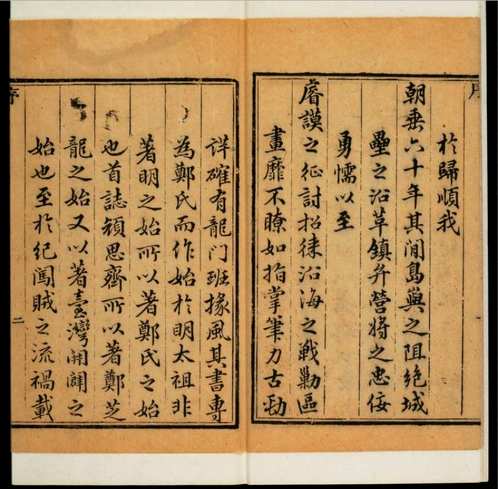 於歸順我
朝垂六十年其間島與之阻絕城
壘之沿革鎮弁營將之忠佞
勇懦以至
睿謨之征討招徠沿海之戰勦區
畫靡不瞭如指掌筆力古勁
詳確有龍门班掾風其書專
為鄭氏而作始於明太祖非
著明之始所以著鄭氏之始
也首誌顏思齊所以著鄭芝
龍之始又以著臺灣開闢之
始也至於紀闖賊之流禍載
序
二